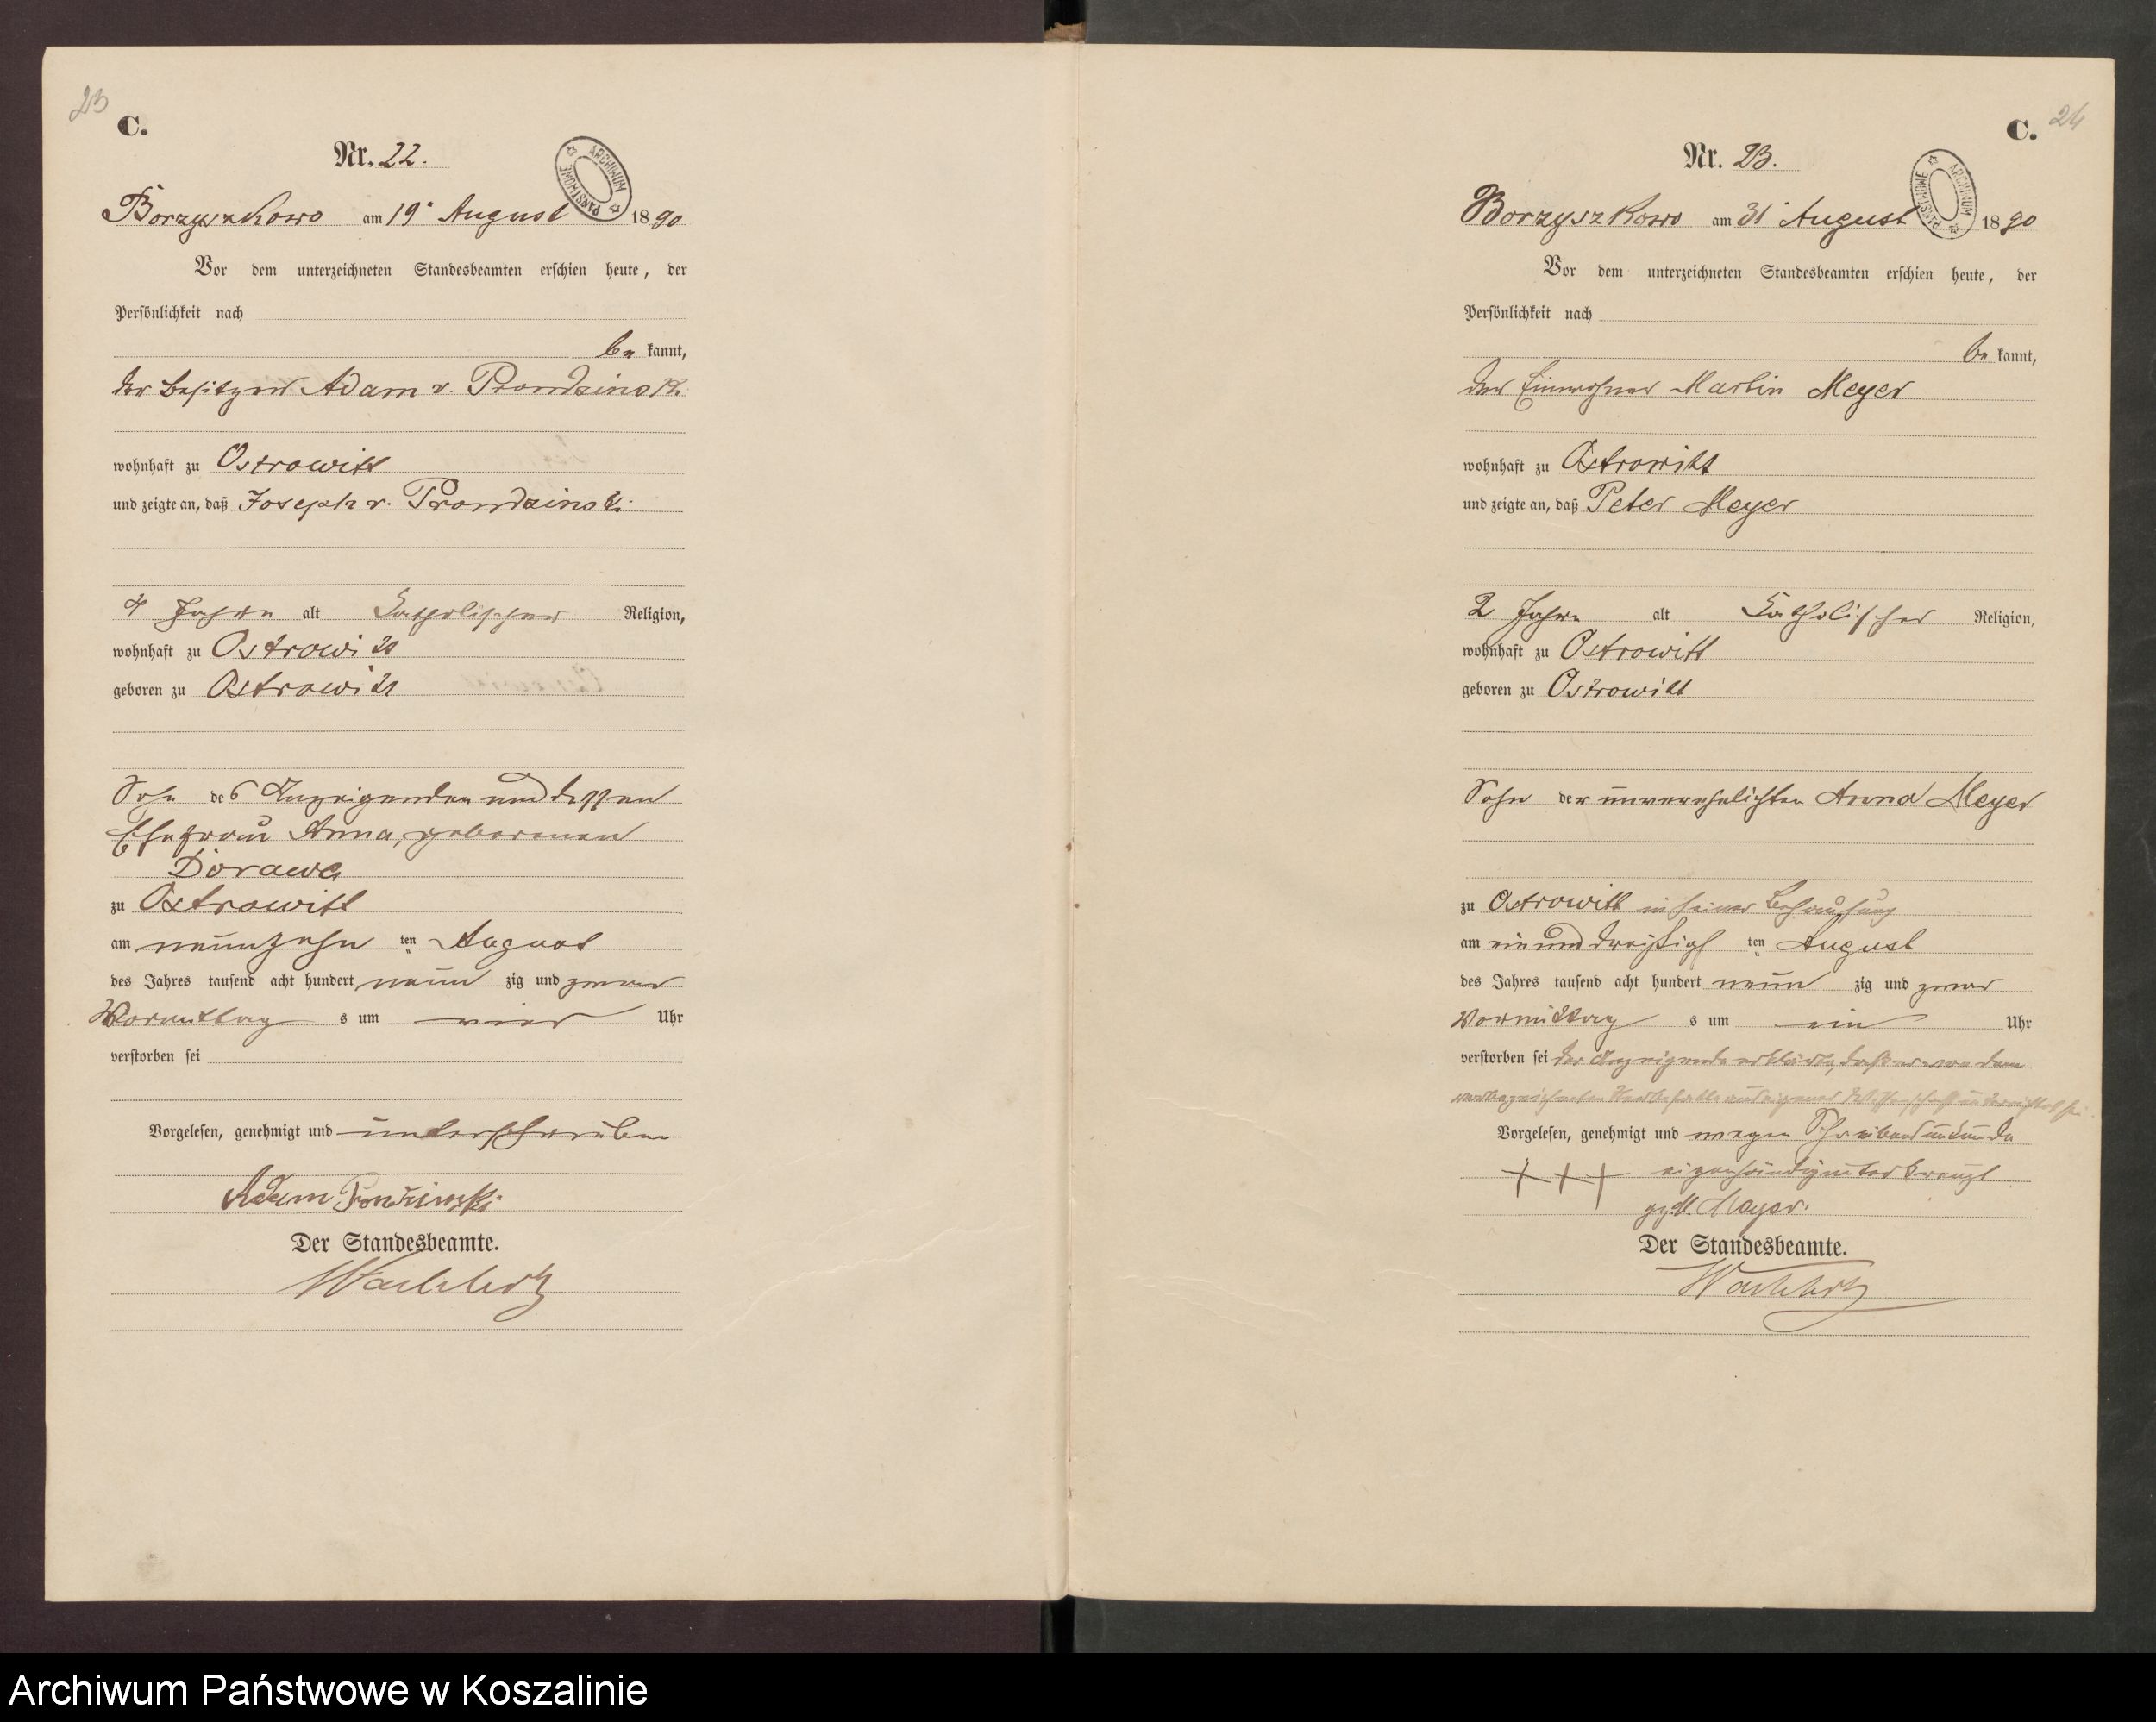 23
C.
Nr. 22.
ARCHIWUM PAŃSTWOWE
Borzyszkowo am 19. August 1890
Vor dem unterzeichneten Standesbeamten erschien heute, der
Persönlichkeit nach
be kannt,
der Besitzer Adam v. Prondzinski
wohnhaft zu Ostrowitt
und zeigte an, daß Joseph v. Prondzinski
4 Jahre alt katholischer Religion,
wohnhaft zu Ostrowitt
geboren zu Ostrowitt
Sohn des Anzeigenden und dessen
Ehefrau Anna, geborenen
Dorawa
zu Ostrowitt
am neunzehn ten August
des Jahres tausend acht hundert neun zig und zwar
Vormittag s um vier Uhr
verstorben sei
Vorgelesen, genehmigt und unterschrieben
Adam Prondzinski
Der Standesbeamte.
24
C.
Nr. 23.
ARCHIWUM PAŃSTWOWE
Borzyszkowo am 31. August 1890
Vor dem unterzeichneten Standesbeamten erschien heute, der
Persönlichkeit nach
be kannt,
der Einwohner Martin Meyer
wohnhaft zu Ostrowitt
und zeigte an, daß Peter Meyer
2 Jahre alt katholischer Religion,
wohnhaft zu Ostrowitt
geboren zu Ostrowitt
Sohn der unverehelichten Anna Meyer
zu Ostrowitt in seiner Behausung
am einunddreißigs ten August
des Jahres tausend acht hundert neun zig und zwar
Vormittag s um ein Uhr
verstorben sei der Anzeigende erklärte, daß er von dem
vorbezeichneten Sterbefalle aus eigener Wissenschaft unterrichtet sei.
Vorgelesen, genehmigt und wegen Schreibensunkunde
+++ eigenhändig unterkreuzt
gez. M. Meyer.
Der Standesbeamte.
Archiwum Państwowe w Koszalinie